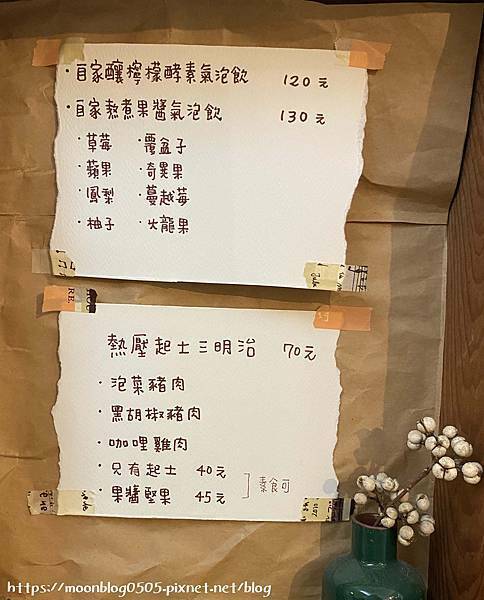 ・自家釀檸檬酵素氣泡飲 120元
・自家熬煮果醬氣泡飲 130元
・草莓 ・覆盆子
・蘋果 ・奇異果
・鳳梨 ・蔓越莓
・柚子 ・火龍果
熱壓起士三明治 70元
・泡菜豬肉
・黑胡椒豬肉
・咖哩雞肉
・只有起士 40元
・果醬堅果 45元
素食可
https://moonblog0505.pixnet.net/blog